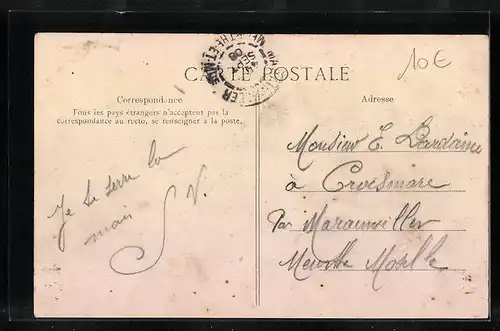 10€
CARTE POSTALE
Correspondance
Tous les pays étrangers n'acceptent pas la
correspondance au recto, se renseigner à la poste.
Adresse
Je te serre la
main
S V.
Monsieur E. Dardaine
à Croismare
Par Marainviller
Meurthe Moselle